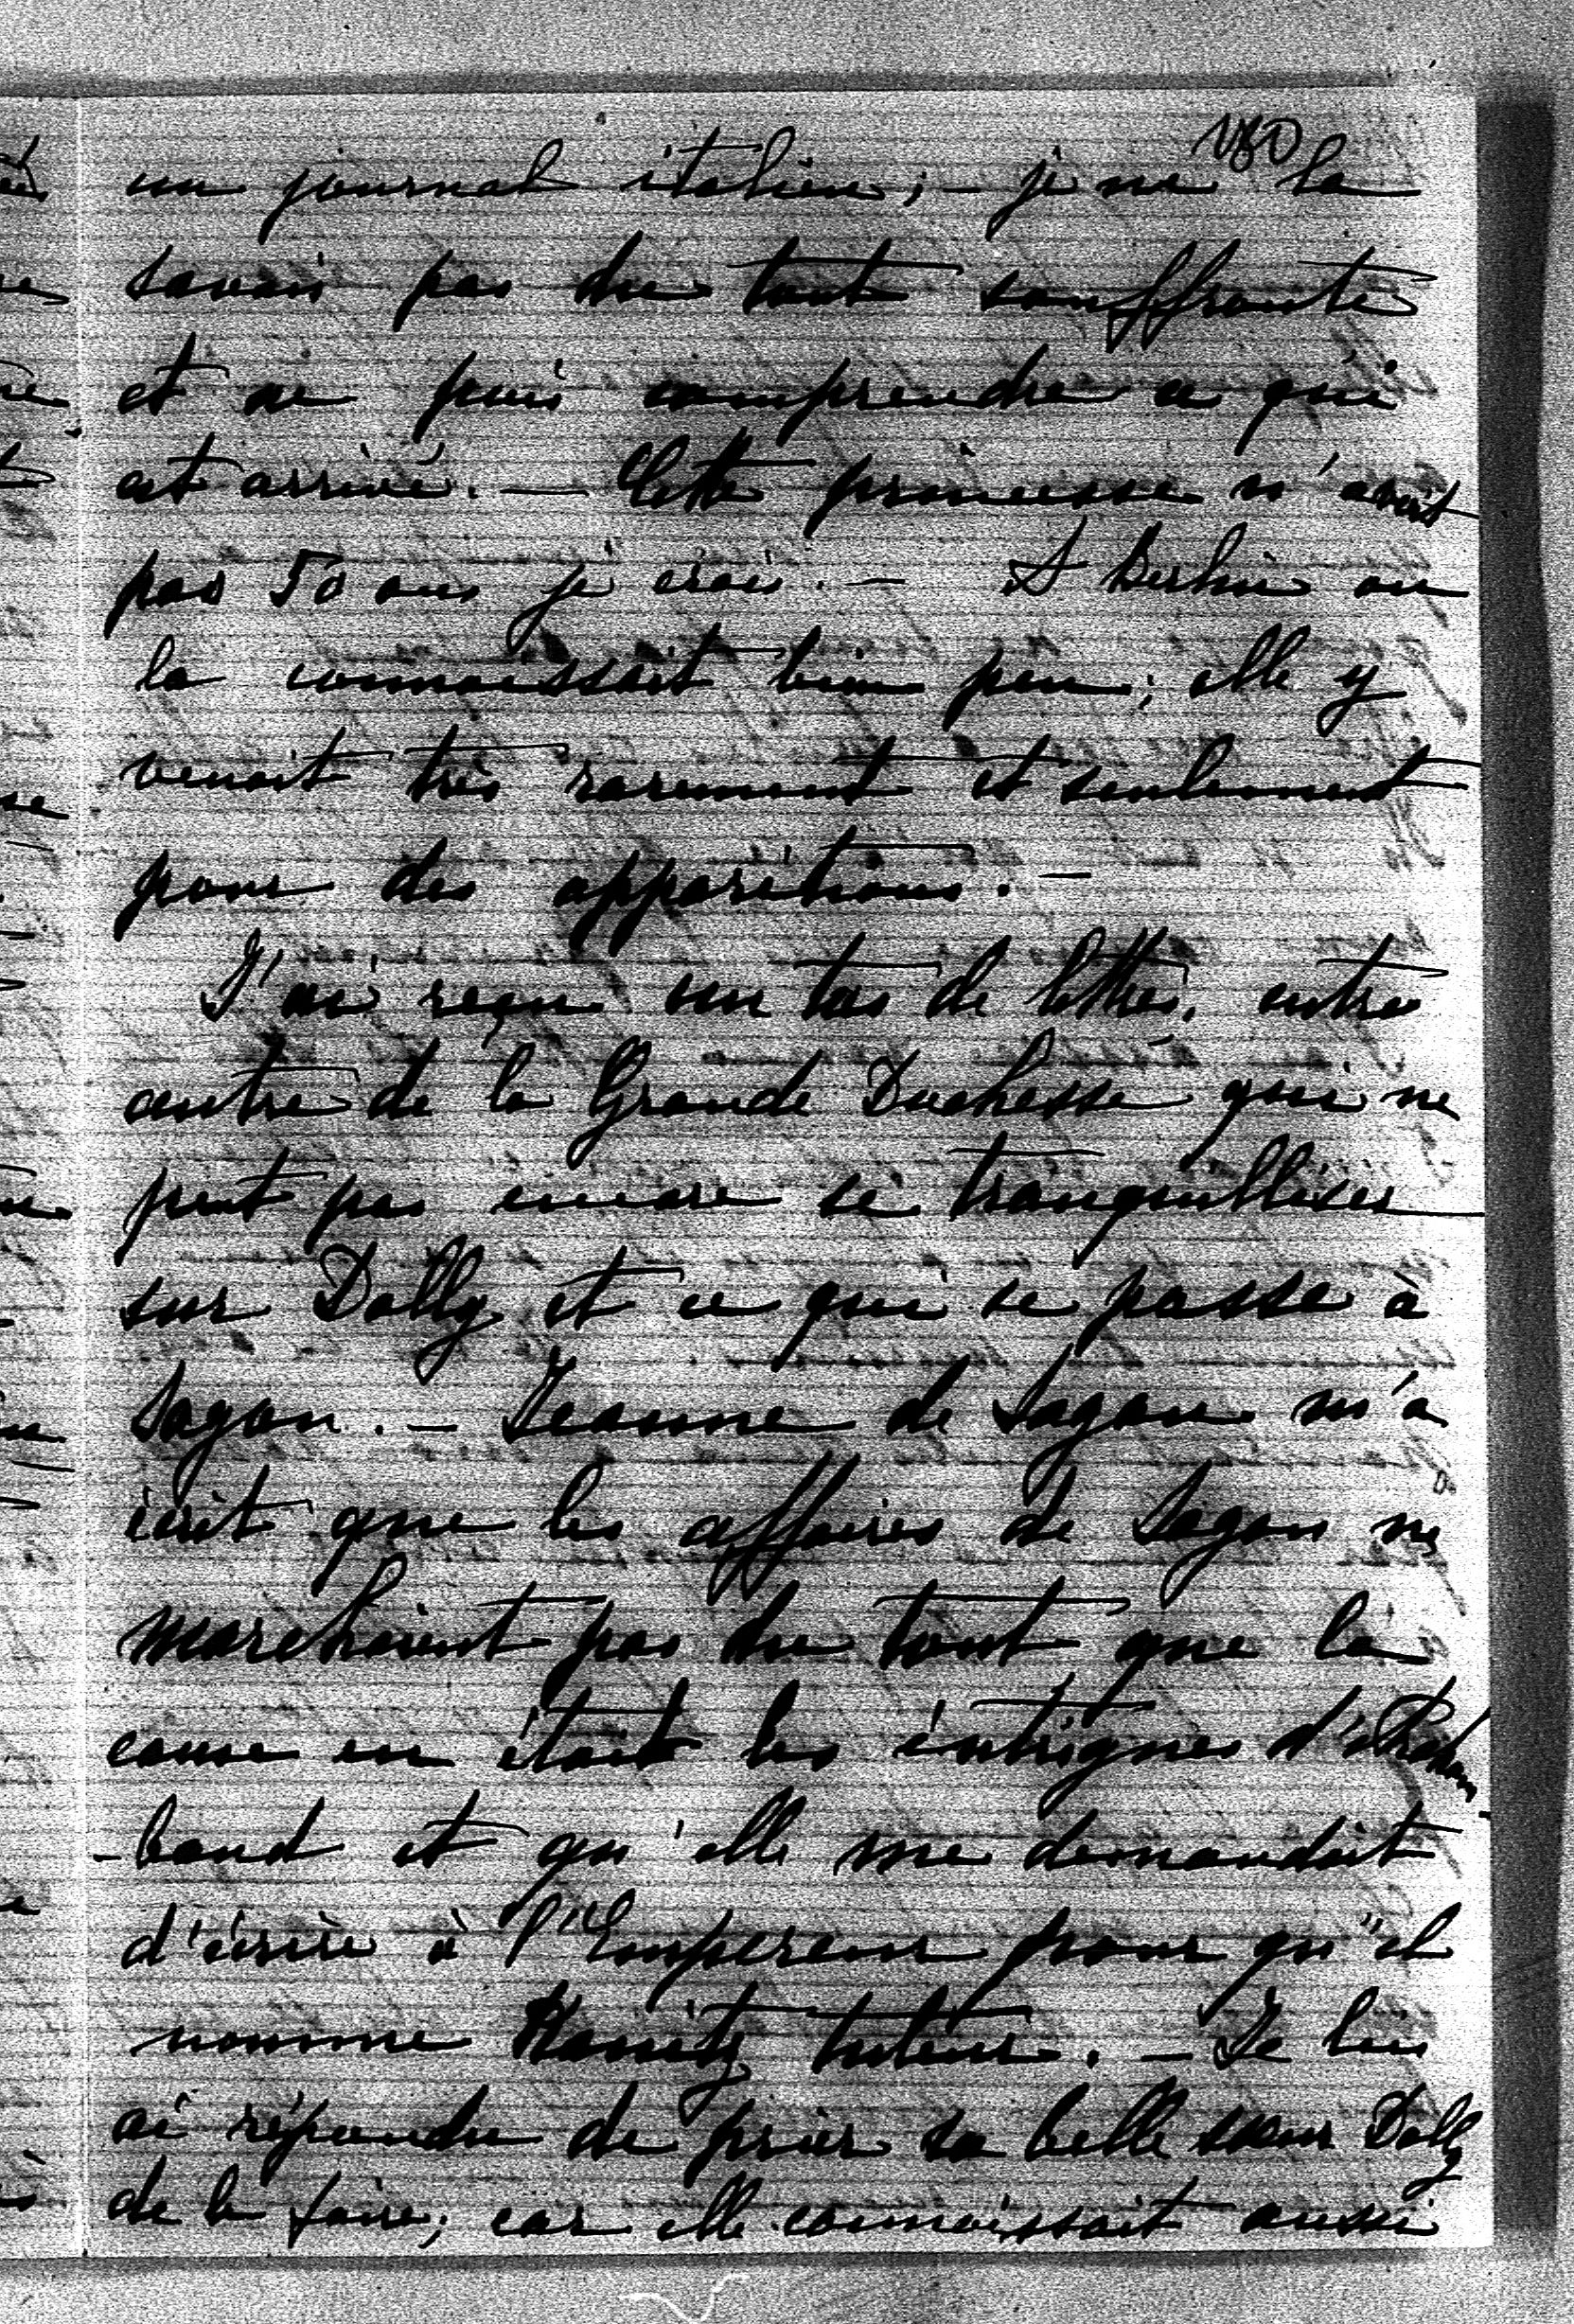 180
un journal italien; – je ne la
savais pas du tout souffrante
et ne puis comprendre ce qui
est arrivé. – Cette princesse n'avait
pas 50 ans je crois. – A Berlin on
la connaissait bien peu; elle y
venait très rarement et seulement
pour des apparitions. –
J'ai reçu un tas de lettres, entre
autre de la Grande Duchesse qui ne
peut pas encore se tranquilliser
sur Dolly et ce qui se passe à
Sagan. – Jeanne de Sagan m'a
écrit que les affaires de Sagan ne
marchaient pas du tout que la
cause en était les intrigues
et qu'elle me demandait
d'écrire à l'Empereur pour qu'il
nomme Kanitz tuteur. – Je lui
ai répondu de prier sa belle soeur Dolly
de le faire; car elle connaissait aussi